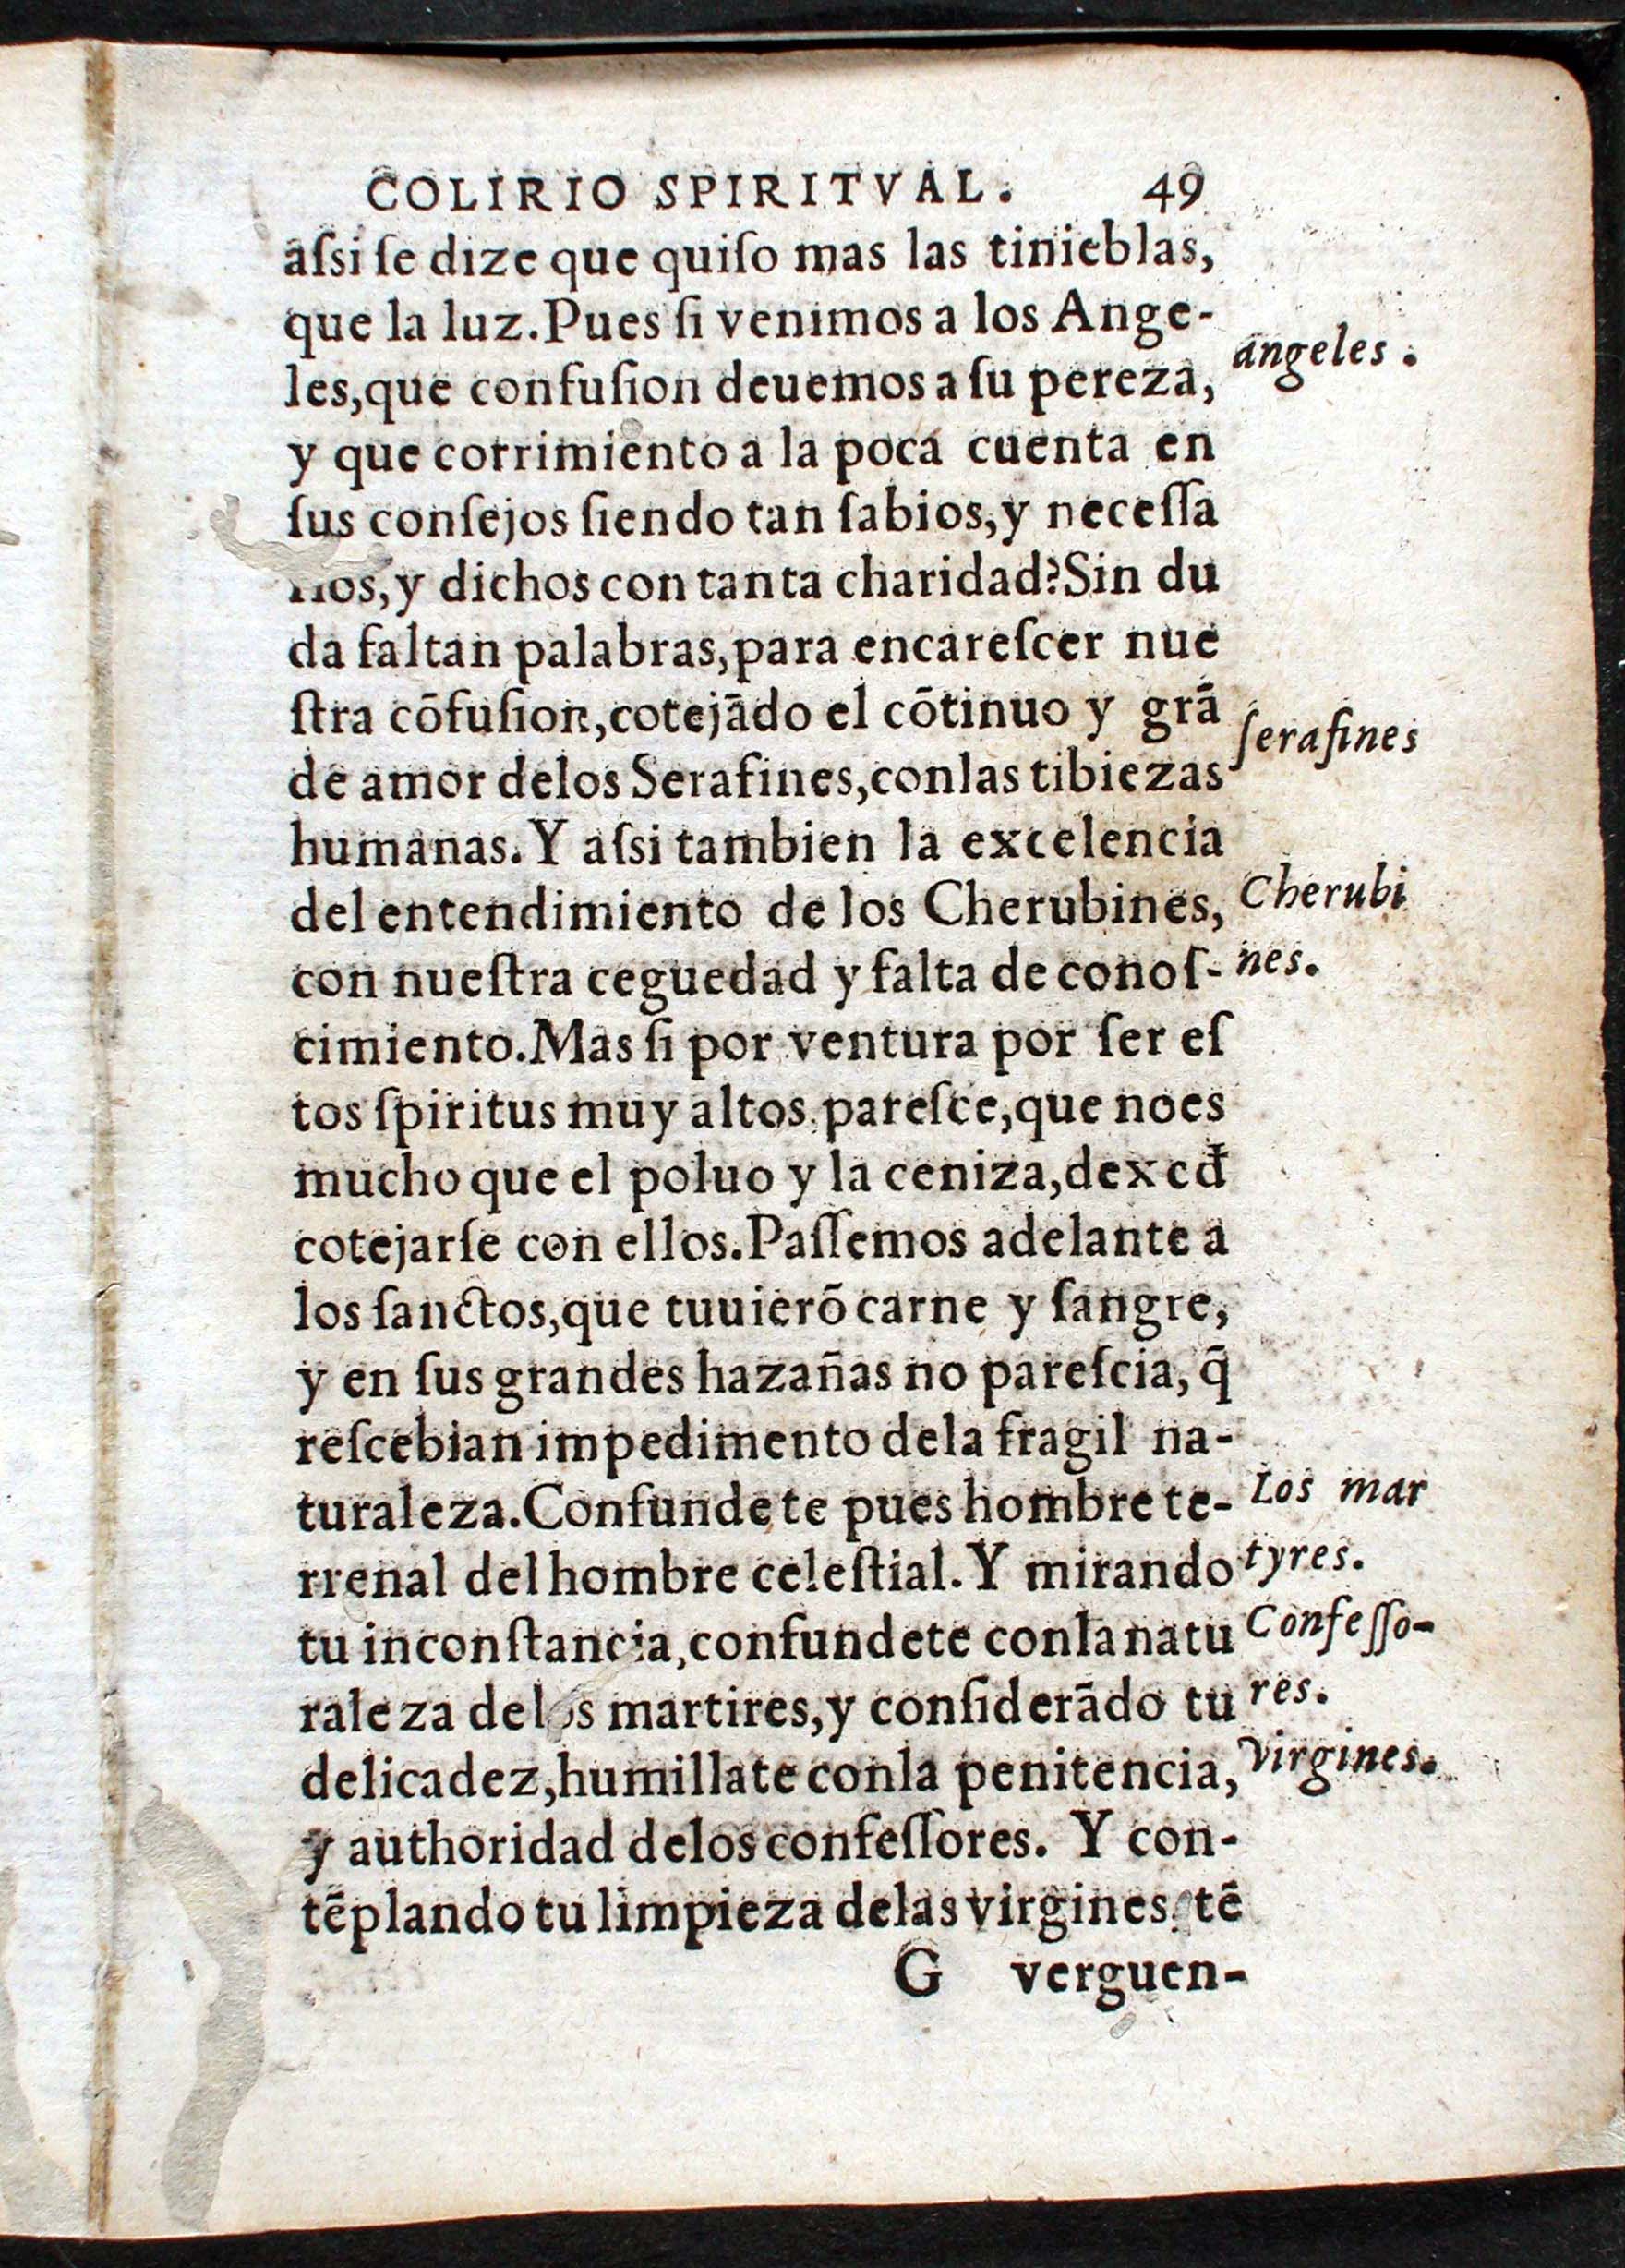 COLIRIO SPIRITVAL. 49
aſsi ſe dize que quiſo mas las tinieblas,
que la luz.Pues ſi venimos a los Ange-
angeles.
les,que confuſion deuemos a ſu pereza,
y que corrimiento a la poca cuenta en
ſus conſejos ſiendo tan ſabios,y neceſſa
rios,y dichos con tanta charidad?Sin du
da faltan palabras,para encareſcer nue
ſtra cōfuſion,cotejādo el cōtinuo y grā
ſerafines
de amor delos Serafines,conlas tibiezas
humanas.Y aſsi tambien la excelencia
del entendimiento de los Cherubines,
Cherubi
con nueſtra ceguedad y falta de conoſ-
nes.
cimiento.Mas ſi por ventura por ſer eſ
tos ſpiritus muy altos pareſce,que noes
mucho que el poluo y la ceniza,dexe đ
cotejarſe con ellos.Paſſemos adelante a
los ſanctos,que tuuierō carne y ſangre,
y en ſus grandes hazañas no pareſcia, q̄
reſcebian impedimento dela fragil na-
turaleza.Confunde te pues hombre te-
Los mar
rrenal del hombre celeſtial.Y mirando
tyres.
tu inconſtancia,confundete conla natu
Confeſſo-
raleza delos martires,y conſiderādo tu
res.
delicadez,humillate conla penitencia,
Virgines.
y authoridad delos confeſſores. Y con-
tēplando tu limpieza delas virgines, tē
G verguen-